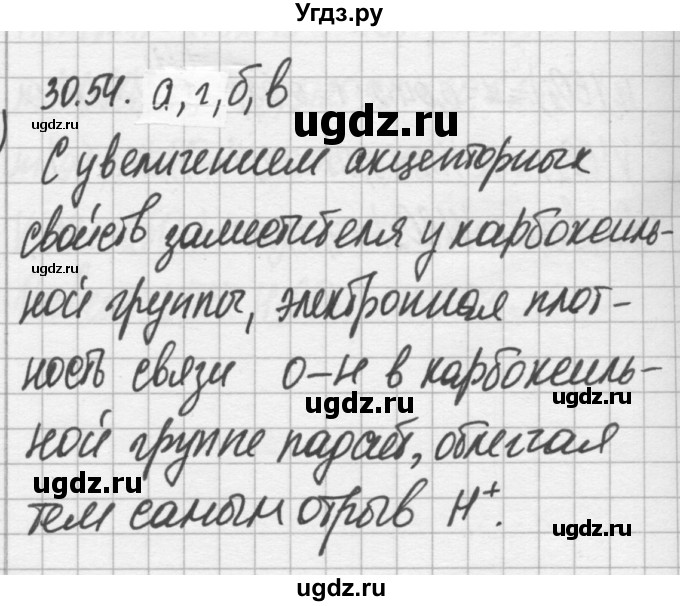 Угдз.ру
30.54. а, г, б, в
С увеличением акцепторных
свойств заместителя у карбоксиль-
ной группы, электронная плот-
ность связи O-H в карбоксиль-
ной группе падает, облегчая
тем самым отрыв H⁺.
ugdz.ru
ugdz.ru
ugdz.ru
ugdz.ru
ugdz.ru
ugdz.ru
ugdz.ru
ugdz.ru
ugdz.ru